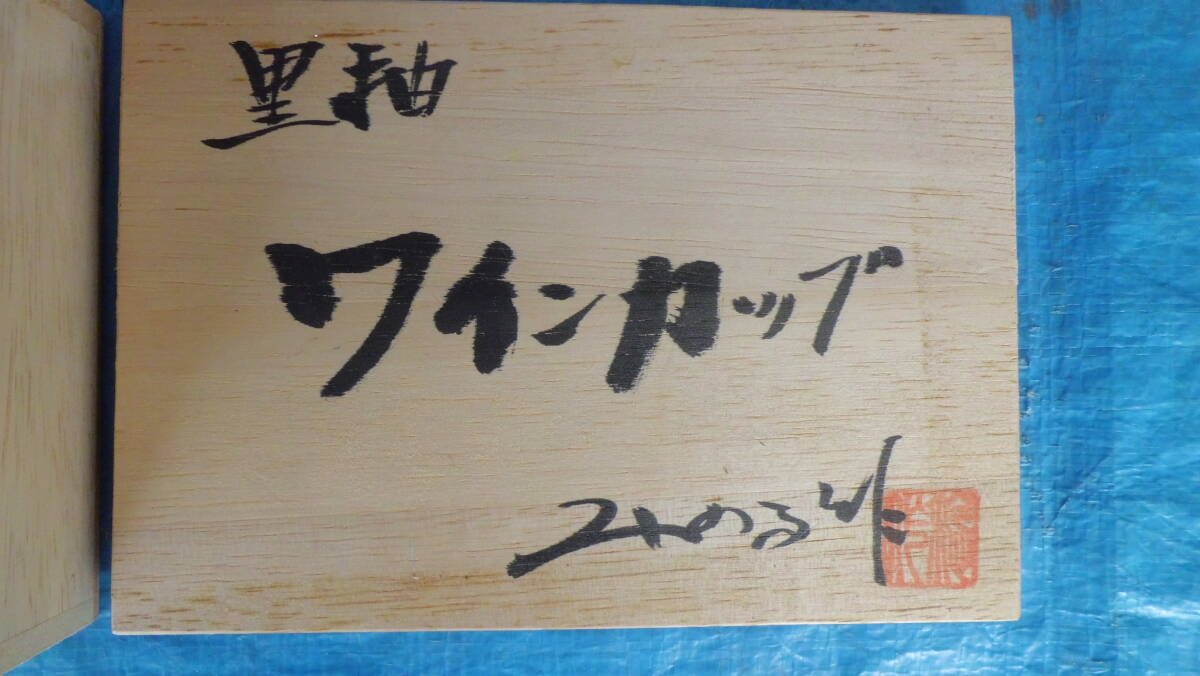 黒釉
ワインカップ
みのる作